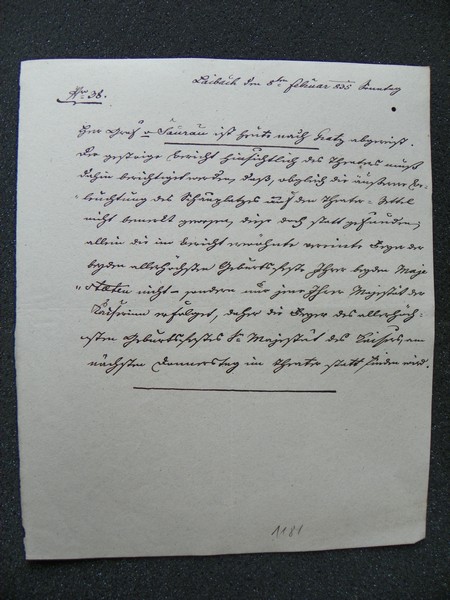 Laibach den 8ten Februar 835 Sonntag
Nro 38.
Herr Graf v Saurau ist heute nach Gratz abgereist.
Der gestrige Bericht hinsichtlich des Theaters muß
dahin berichtiget werden, daß, obgleich die äussere Be-
leuchtung des Schauplatzes auf den Theater-Zettel
nicht bemerkt gewesen, diese doch statt gefunden;
allein die im Bericht erwähnte vereinte Feyer der
beyden allerhöchsten Geburtsfeste Ihrer beyden Maje
stäten nicht - sondern nur jene Ihrer Majestät der
Kaiserinn erfolget, daher die Feyer des allerhöch-
sten Geburtsfestes Sr Majestät des Kaisers, am
nächsten Donnerstag im Theater statt finden wird.
1181